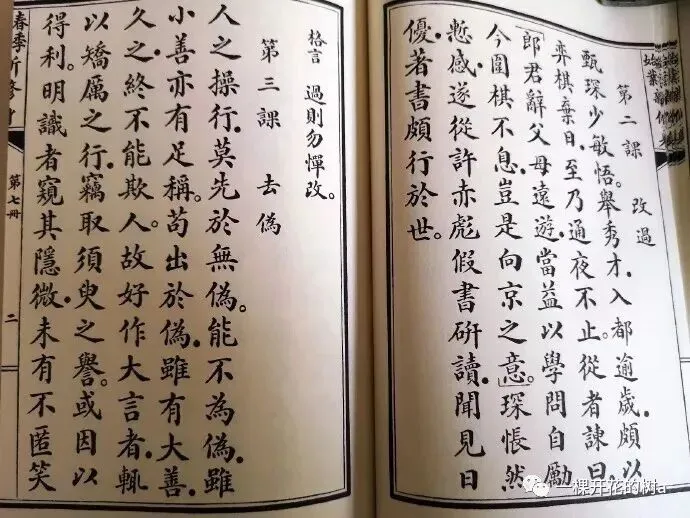 第二課 改過
甄琛少敏悟。舉秀才.入都逾歲.頗以
弈棋棄日.至乃通夜不止。從者諫曰.
「郎君辭父母遠遊.當益以學問自勵
今圍棋不息.豈是向京之意。」琛悵然
慙感.遂從許赤彪假書研讀.聞見日
優.著書頗行於世。
格言 過則勿憚改。
第三課 去偽
人之操行.莫先於無偽。能不為偽.雖
小善亦有足稱。苟出於偽.雖有大善.
久之終不能欺人。故好作大言者.輒
以矯厲之行.竊取須臾之譽。或因以
得利。明識者窺其隱微.未有不匿笑
春季
第七冊
二
一棵开花的树a